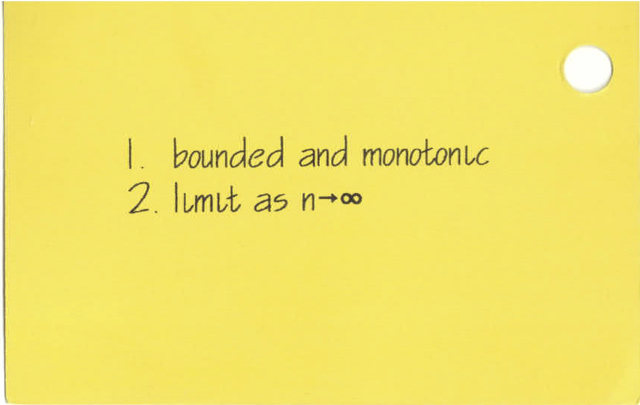 1. bounded and monotonic
2. limit as n→∞